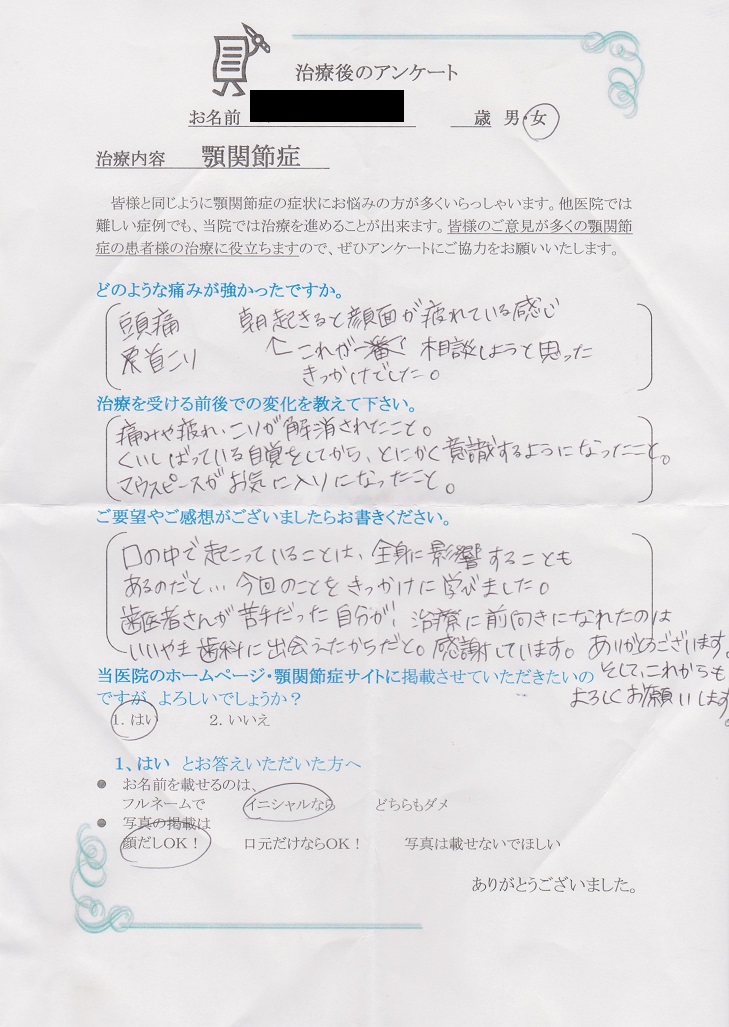 治療後のアンケート
お名前 歳 男・女
治療内容 顎関節症
皆様と同じように顎関節症の症状にお悩みの方が多くいらっしゃいます。他医院では
難しい症例でも、当院では治療を進めることが出来ます。皆様のご意見が多くの顎関節
症の患者様の治療に役立ちますので、ぜひアンケートにご協力をお願いいたします。
どのような痛みが強かったですか。
頭痛 朝起きると顔面が疲れている感じ
肩首こり ↑これが一番で 相談しようと思った
きっかけでした。
治療を受ける前後での変化を教えて下さい。
痛みや疲れ、こりが解消されたこと。
くいしばっている自覚をしてから、とにかく意識するようになったこと。
マウスピースがお気に入りになったこと。
ご要望やご感想がございましたらお書きください。
口の中で起こっていることは、全身に影響することも
あるのだと… 今回のことをきっかけに学びました。
歯医者さんが苦手だった自分が! 治療に前向きになれたのは
いいやま歯科に出会えたからだと。感謝しています。ありがとうございます。
そして、これからも
よろしくお願いします
当医院のホームページ・顎関節症サイトに掲載させていただきたいの
ですが、よろしいでしょうか?
1. はい 2. いいえ
1、はい とお答えいただいた方へ
● お名前を載せるのは、
フルネームで イニシャルなら どちらもダメ
● 写真の掲載は
顔だしOK! 口元だけならOK! 写真は載せないでほしい
ありがとうございました。